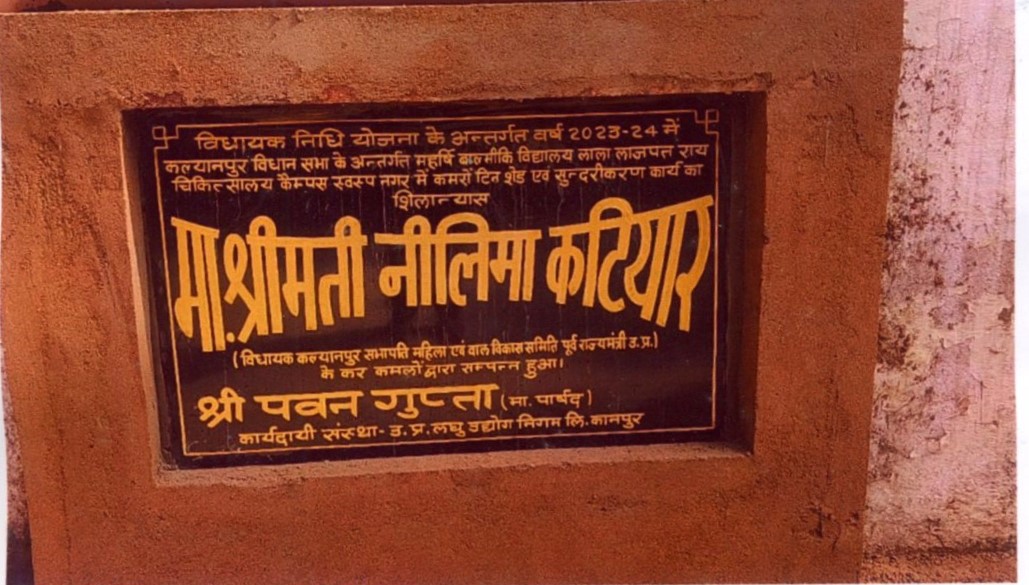 विधायक निधि योजना के अन्तर्गत वर्ष 2023-24 में
कल्यानपुर विधान सभा के अन्तर्गत महर्षि बाल्मीकि विद्यालय लाला लाजपत राय
चिकित्सालय कैम्पस स्वरुप नगर में कमरों टिन शेड एवं सुन्दरीकरण कार्य का
शिलान्यास
मा.श्रीमती नीलिमा कटियार
(विधायक कल्यानपुर सभापति महिला एवं बाल विकास समिति पूर्व राज्यमंत्री उ.प्र.)
के कर कमलों द्वारा सम्पन्न हुआ।
श्री पवन गुप्ता (मा. पार्षद)
कार्यदायी संस्था- उ.प्र.लघु उद्योग निगम लि.कानपुर